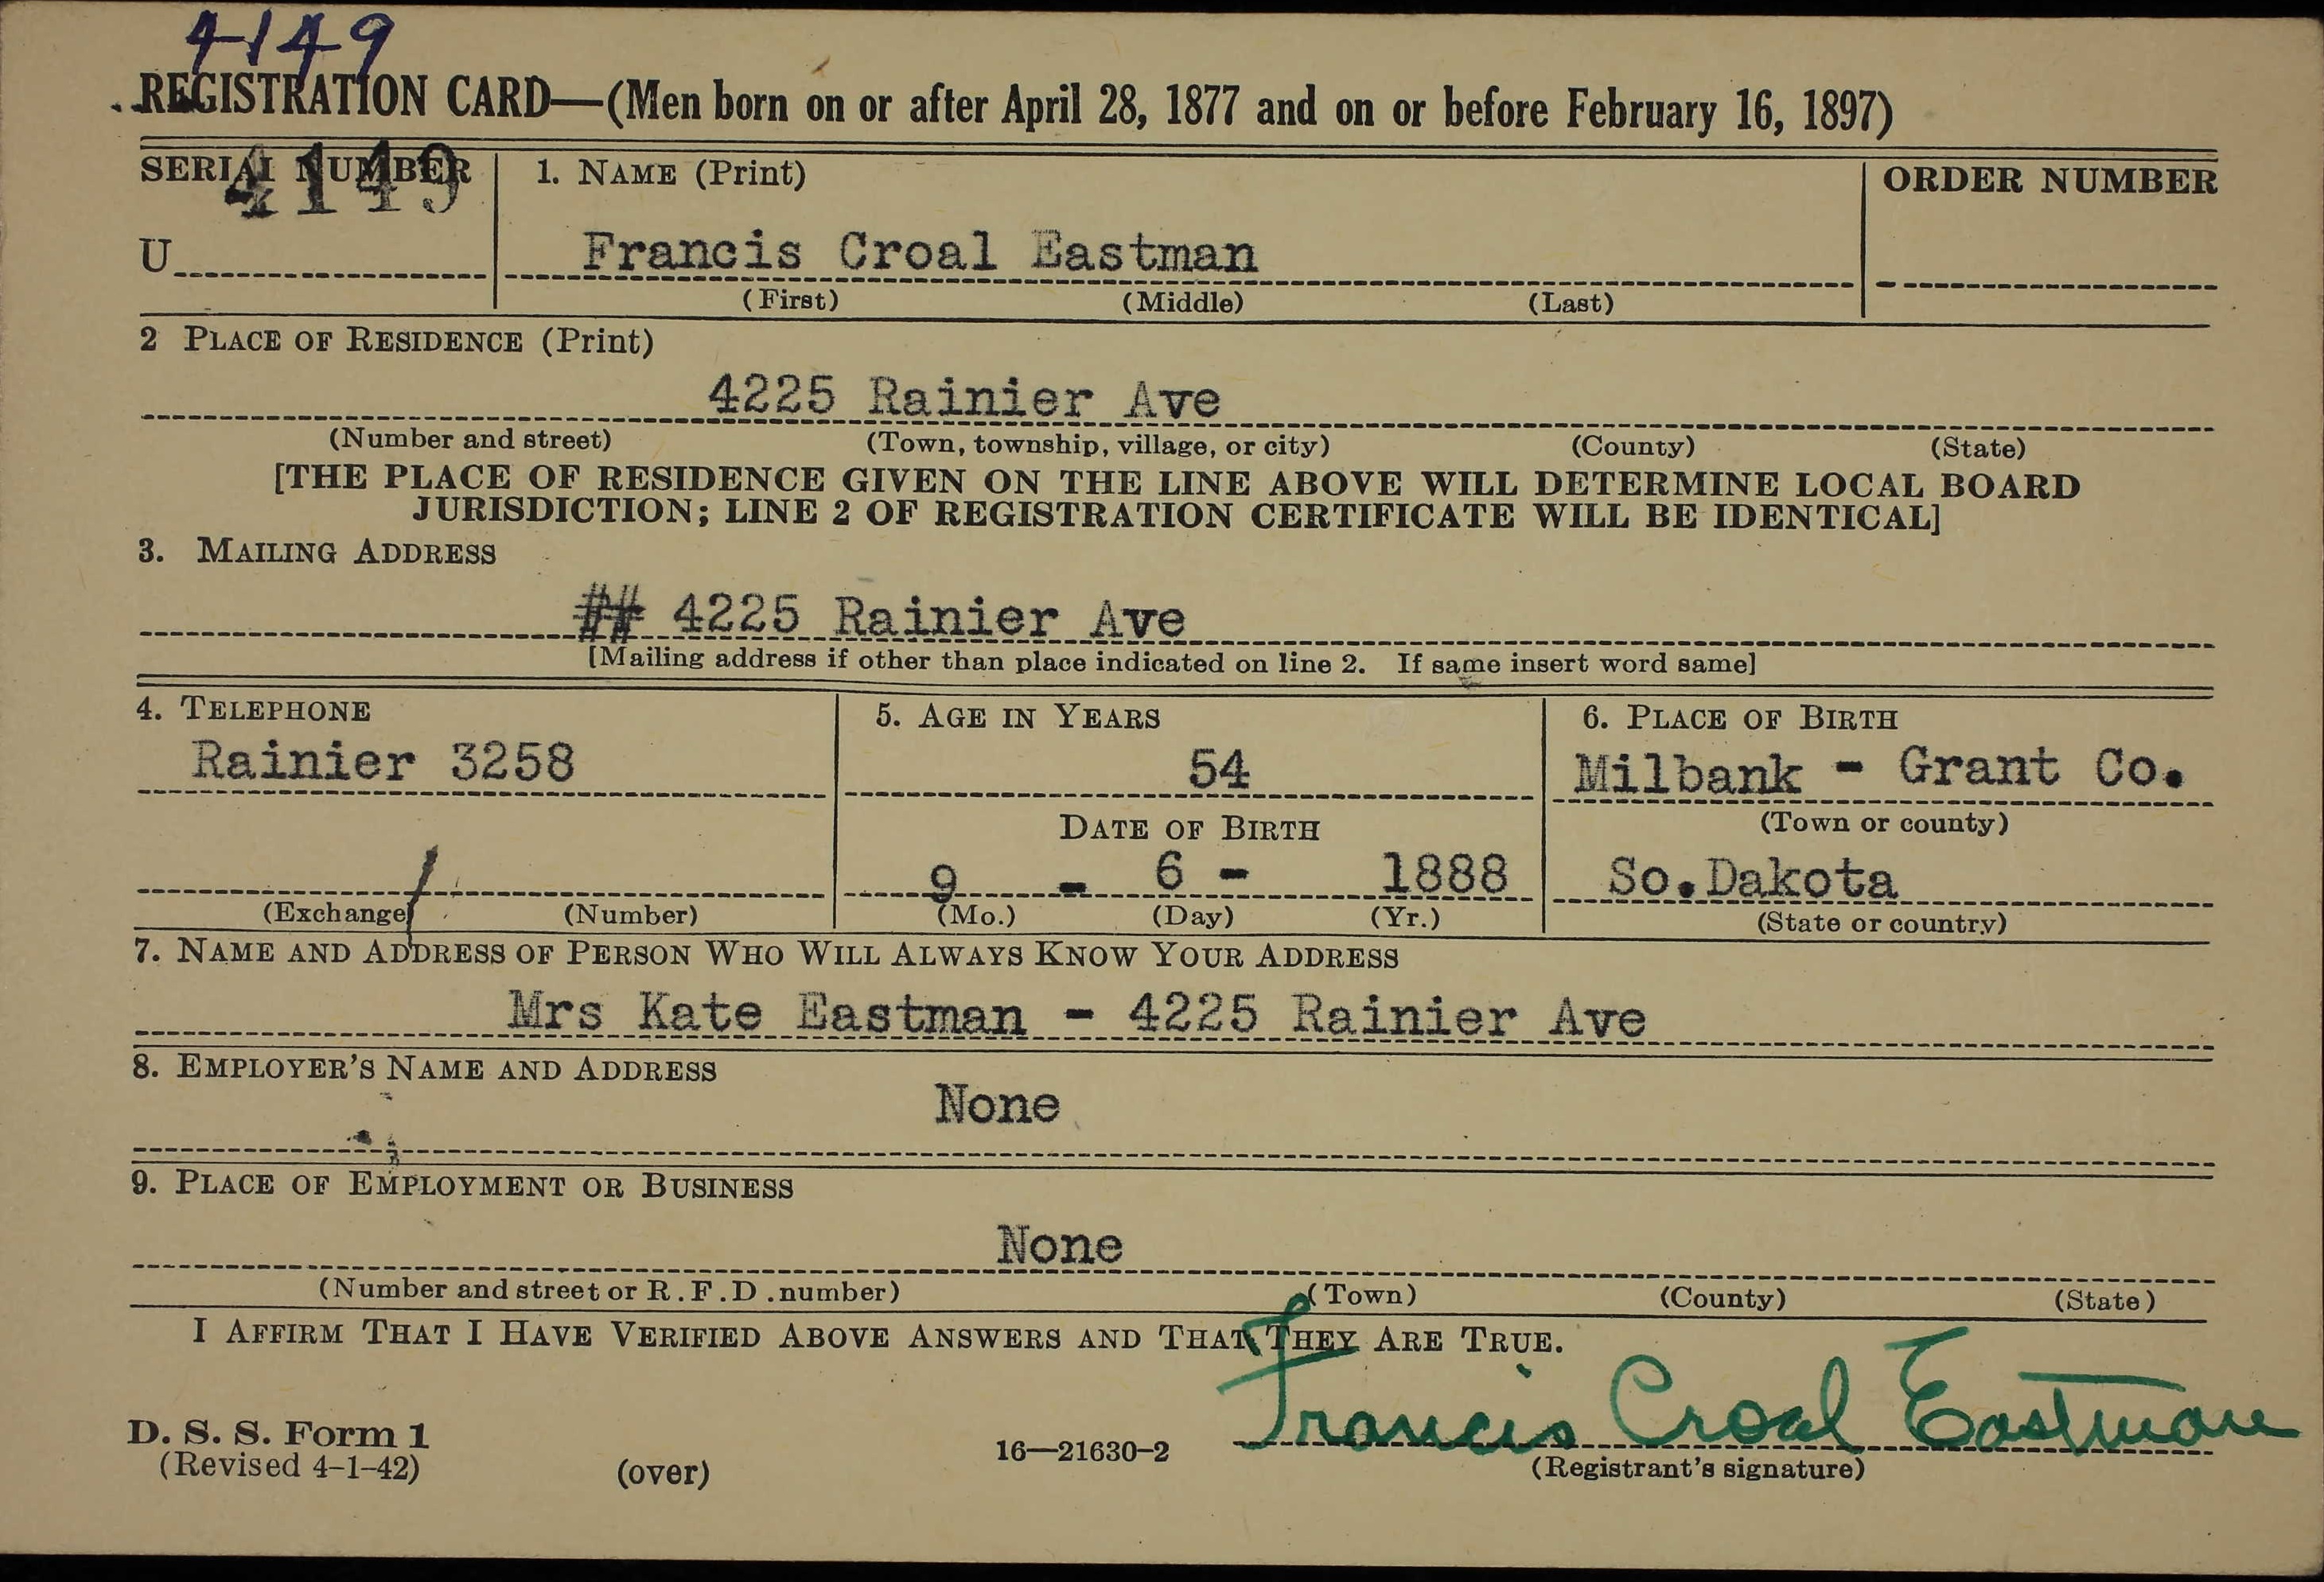 4149
REGISTRATION CARD—(Men born on or after April 28, 1877 and on or before February 16, 1897)
SERIAL NUMBER 1. NAME (Print) ORDER NUMBER
4149
U Francis Croal Eastman
(First) (Middle) (Last)
2 PLACE OF RESIDENCE (Print)
4225 Rainier Ave
(Number and street) (Town, township, village, or city) (County) (State)
[THE PLACE OF RESIDENCE GIVEN ON THE LINE ABOVE WILL DETERMINE LOCAL BOARD
JURISDICTION; LINE 2 OF REGISTRATION CERTIFICATE WILL BE IDENTICAL]
3. MAILING ADDRESS
## 4225 Rainier Ave
[Mailing address if other than place indicated on line 2. If same insert word same]
4. TELEPHONE 5. AGE IN YEARS 6. PLACE OF BIRTH
Rainier 3258 54 Milbank - Grant Co.
DATE OF BIRTH (Town or county)
9 - 6 - 1888 So.Dakota
(Exchange) (Number) (Mo.) (Day) (Yr.) (State or country)
7. NAME AND ADDRESS OF PERSON WHO WILL ALWAYS KNOW YOUR ADDRESS
Mrs Kate Eastman - 4225 Rainier Ave
8. EMPLOYER'S NAME AND ADDRESS
None
9. PLACE OF EMPLOYMENT OR BUSINESS
None
(Number and street or R.F.D.number) (Town) (County) (State)
I AFFIRM THAT I HAVE VERIFIED ABOVE ANSWERS AND THAT THEY ARE TRUE.
Francis Croal Eastman
D. S. S. Form 1
(Revised 4-1-42) (over) 16—21630-2 (Registrant's signature)